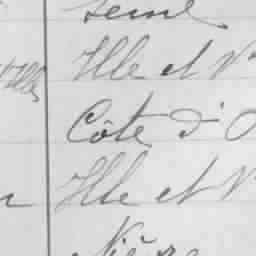 Seine
Ille et V
Côte d'O
Ille et V
Nièvre